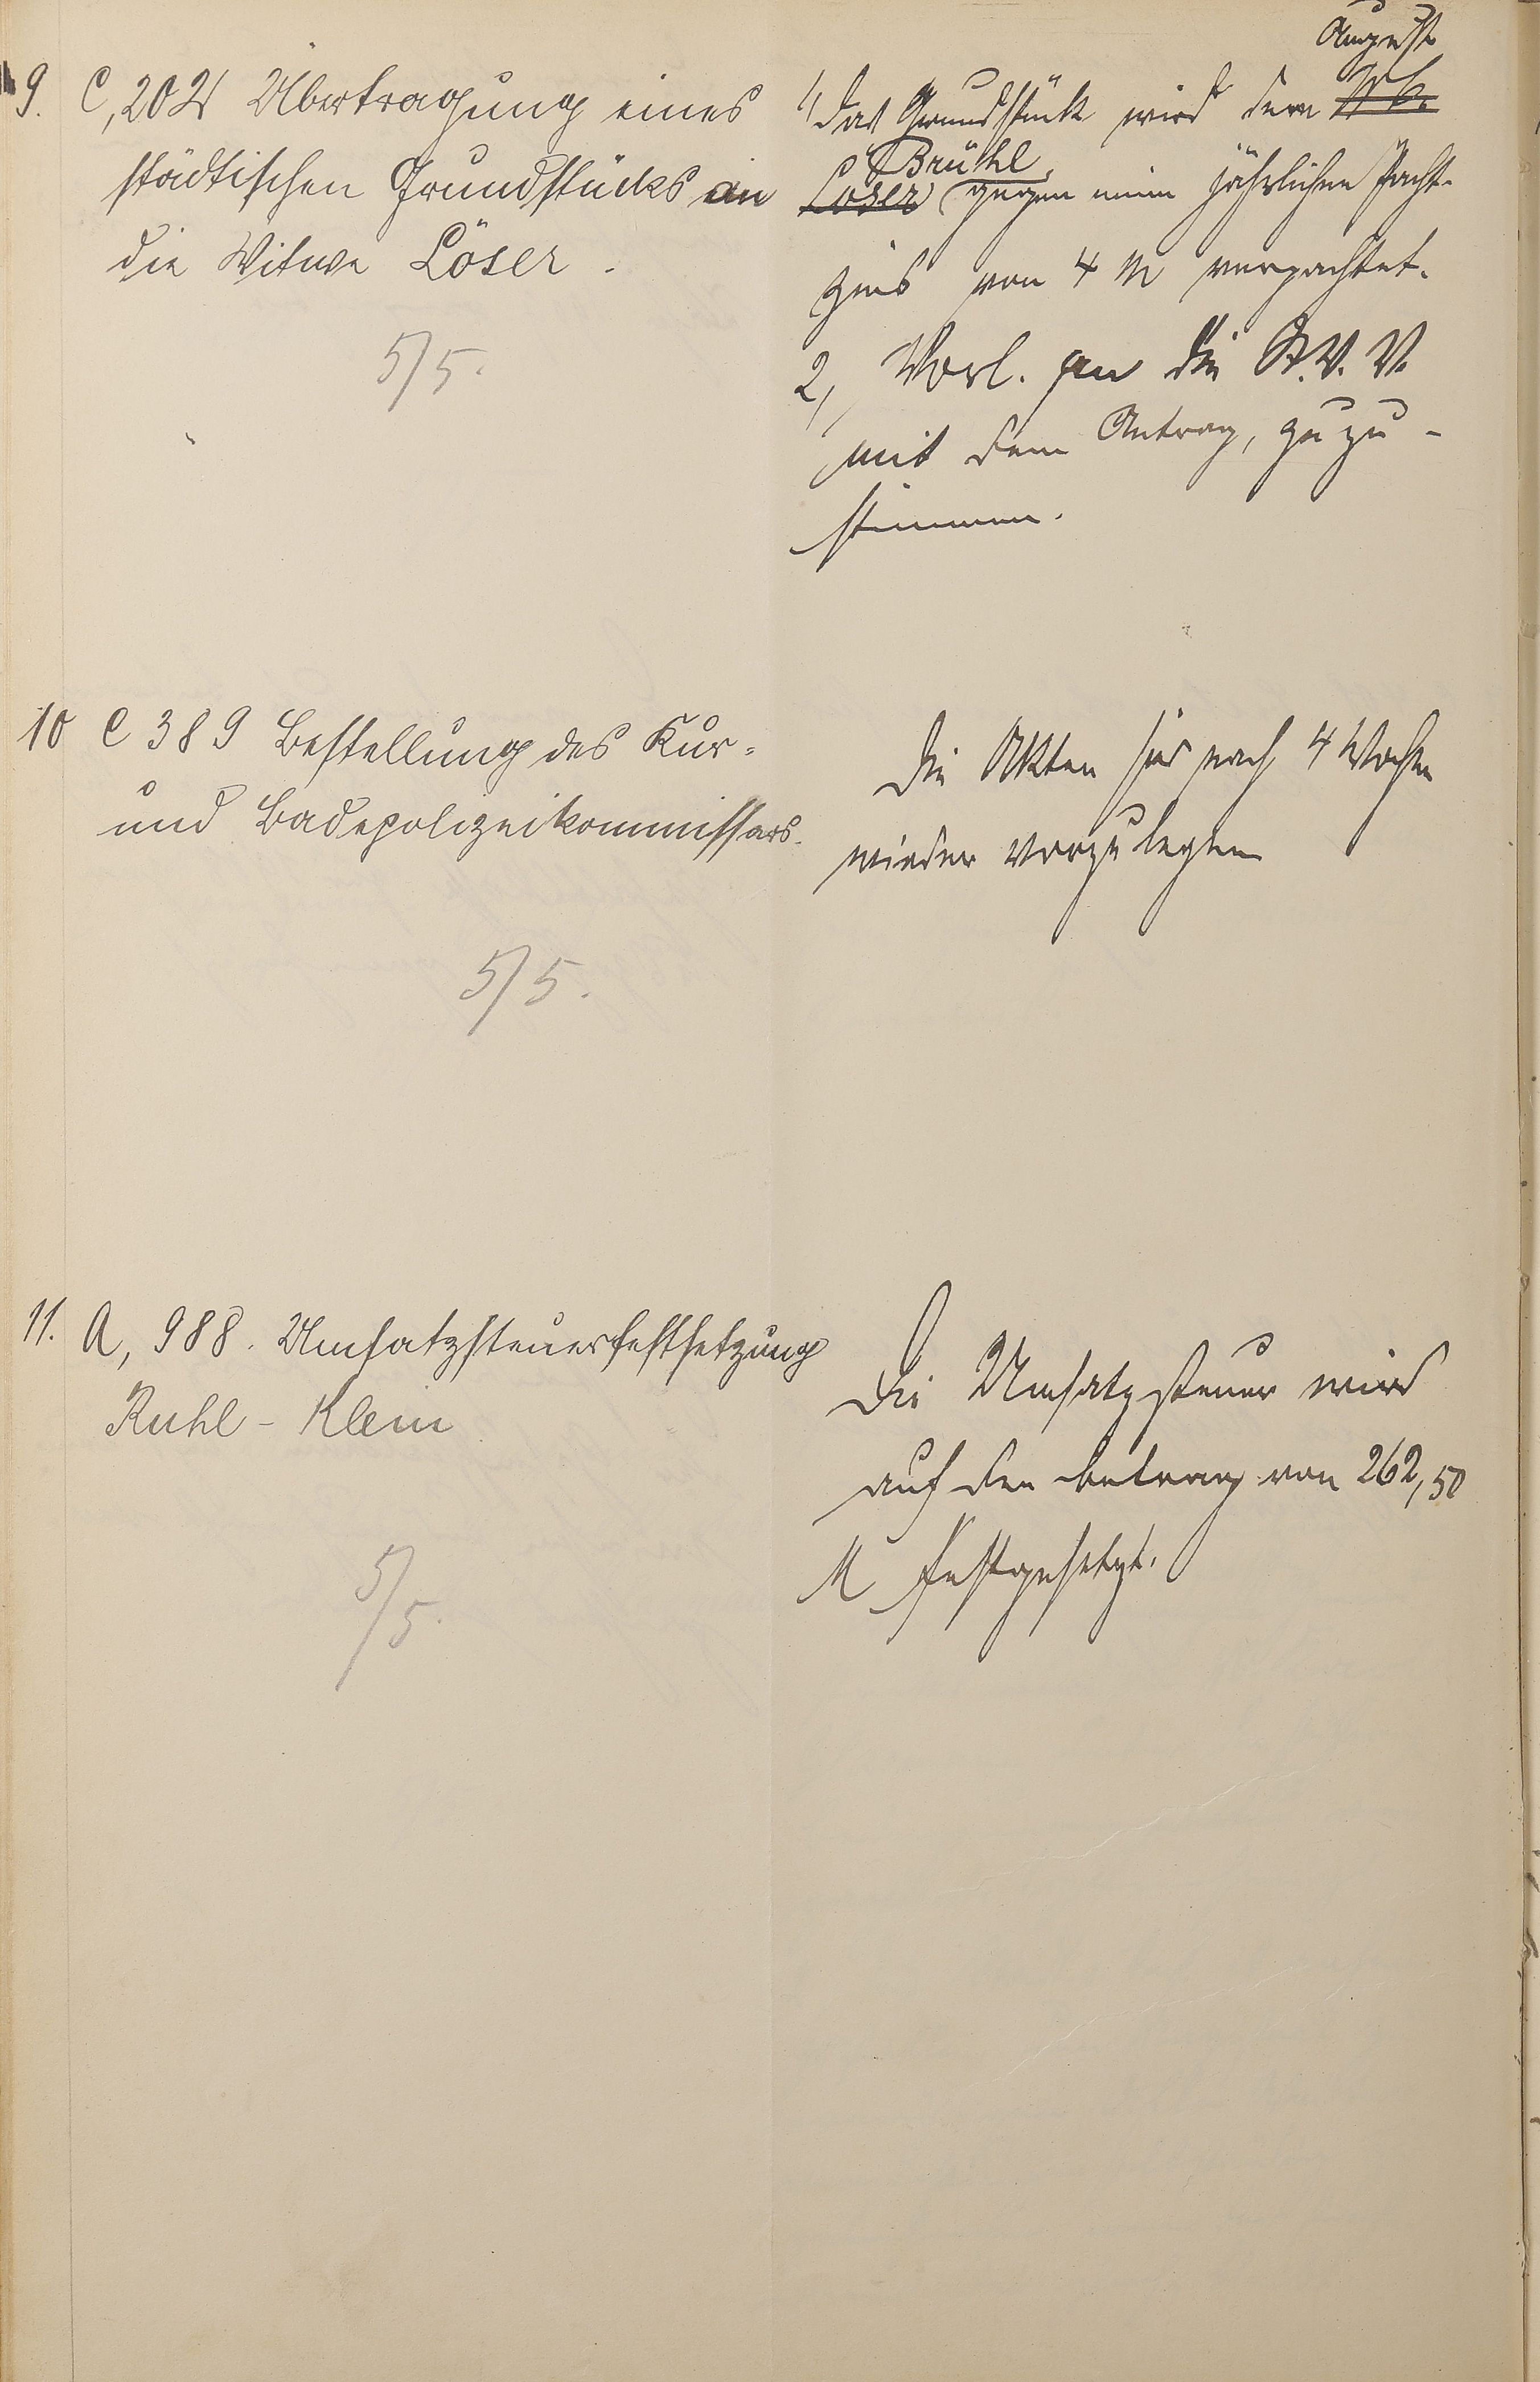 9. C, 202 Übertragung eines
städtischen Grundstücks an
die Witwe Löser.
5/5.
August
1, Das Grundstück wird dem
Brühl
Löser gegen einen jährlichen Pacht-
zins von 4 M verpachtet.
2, Vorl. an die St. V. V.
mit dem Antrag, zuzu-
stimmen.
10 C 389 Bestellung des Kur-
und Badepolizeikommissars.
5/5.
Die Akten sind nach 4 Wochen
wieder vorzulegen
11. A, 988. Umsatzsteuerfestsetzung
Ruhl - Klein
5/5.
Die Umsatzsteuer wird
auf den Betrag von 262,50
M festgesetzt.